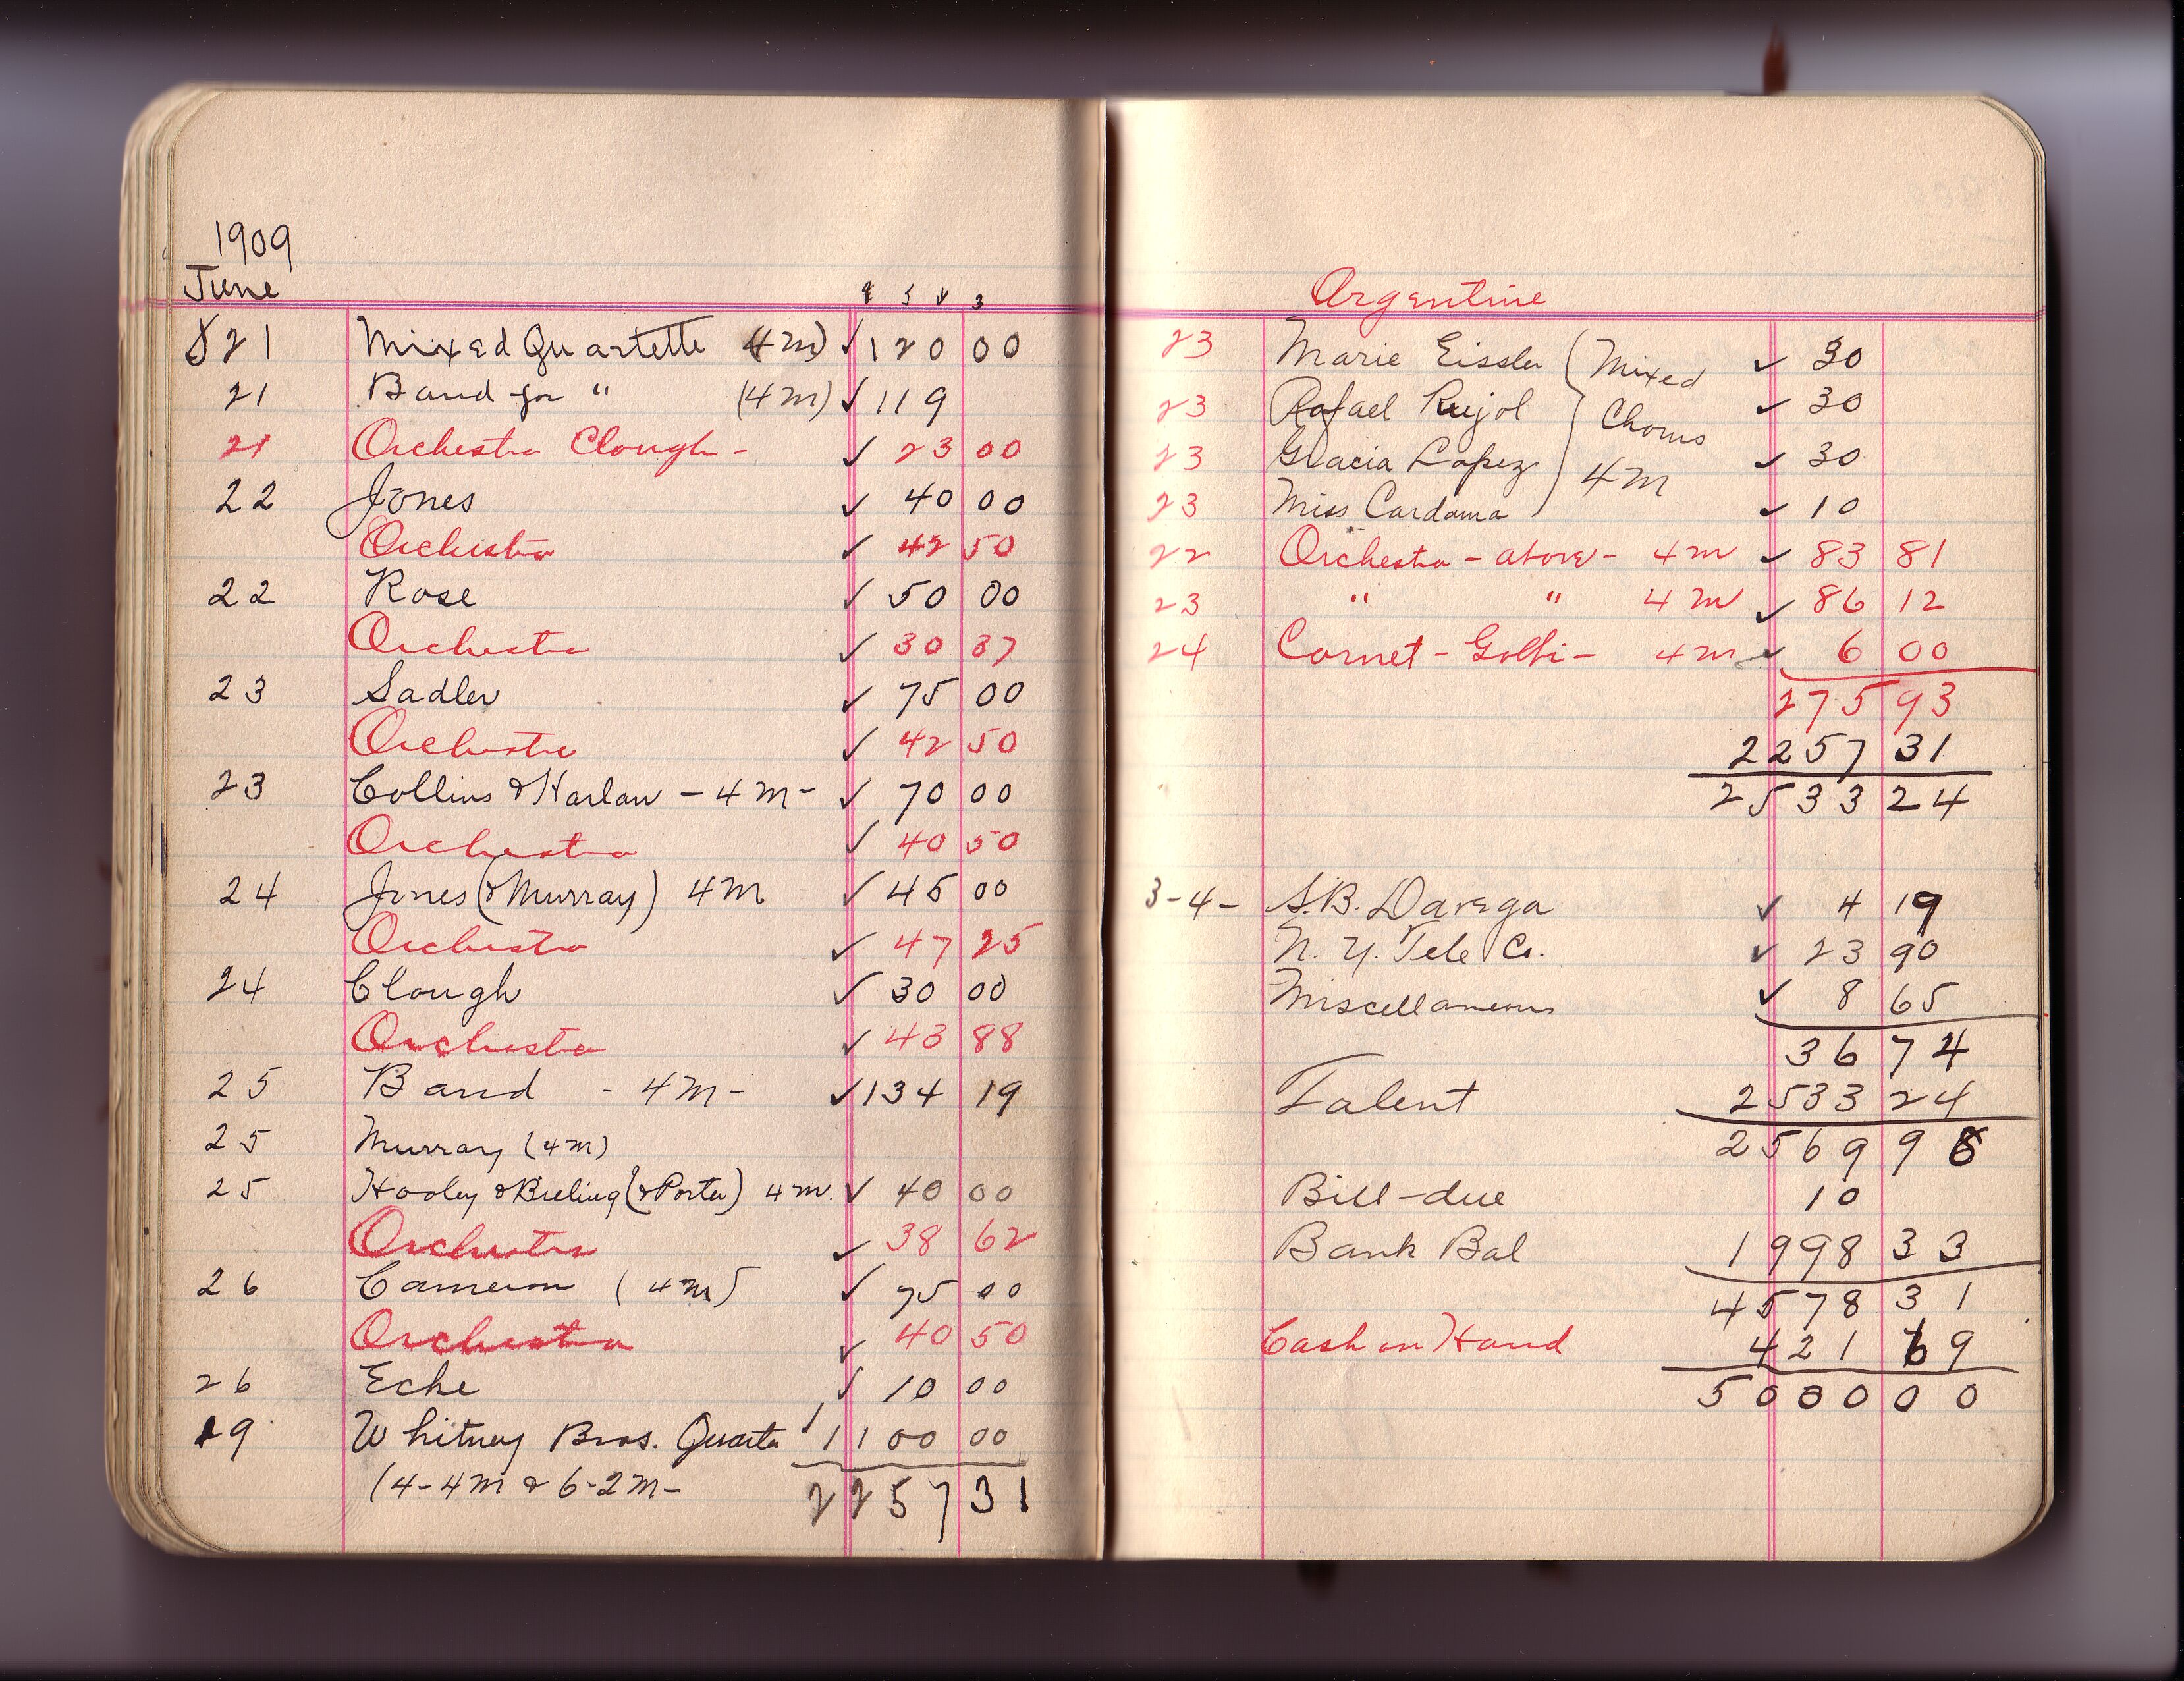 1909
June
21 Mixed Quartette (4m) ✓ 120 00
21 Band for " (4m) ✓ 119
21 Orchestra Clough - ✓ 23 00
22 Jones ✓ 40 00
Orchestra ✓ 42 50
22 Rose ✓ 50 00
Orchestra ✓ 30 37
23 Sadler ✓ 75 00
Orchestra ✓ 42 50
23 Collins & Harlan - 4m - ✓ 70 00
Orchestra ✓ 40 50
24 Jones (& Murray) 4m ✓ 45 00
Orchestra ✓ 47 25
24 Clough ✓ 30 00
Orchestra ✓ 43 88
25 Band - 4m - ✓ 134 19
25 Murray (4m)
25 Hooley & Bieling (& Porter) 4m. ✓ 40 00
Orchestra ✓ 38 62
26 Cameron (4m) ✓ 75 00
Orchestra ✓ 40 50
26 Eche ✓ 10 00
19 Whitney Bros. Quarte ✓ 1100 00
(4-4m & 6-2m-
2257 31
Argentine
23 Marie Eissler (Mixed ✓ 30
23 Rafael Pujol Chorus ✓ 30
23 Gracia Lopez 4m ✓ 30
23 Miss Cardama ✓ 10
22 Orchestra - above - 4m ✓ 83 81
23 " " 4m ✓ 86 12
24 Cornet - - 4m ✓ 6 00
275 93
2257 31
2533 24
3-4- S.B. Davega ✓ 4 19
N.Y. Tele Co. ✓ 23 90
Miscellaneous ✓ 8 65
36 74
Talent 2533 24
2569 98
Bill-due 10
Bank Bal 1998 33
4578 31
Cash on Hand 421 69
5000 00